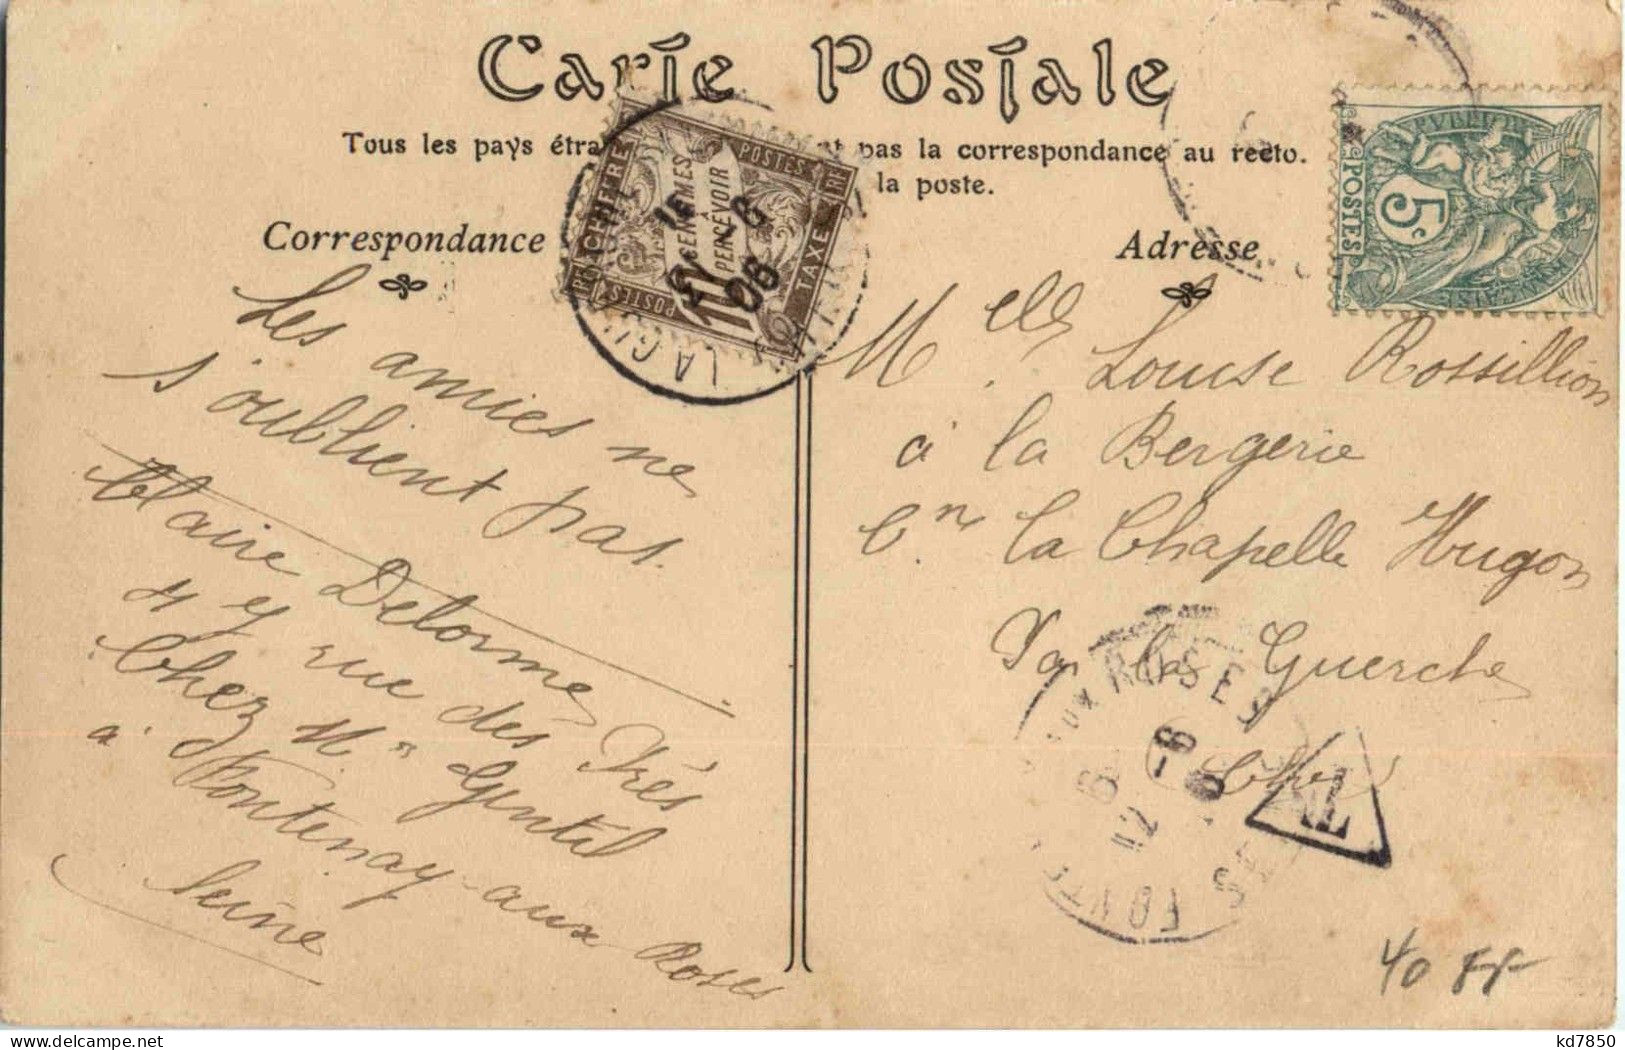 Carte Postale
Tous les pays étra pas la correspondance au recto.
la poste.
Correspondance
Adresse
CHIFFRE
TAXE
POSTES
RF
10
CENTIMES
À
PERCEVOIR
POSTES
5c
POSTES
Les amies ne
s'oublient pas.
Claire Delorme
rue des Prés
Chez Mr Gentil
à Fontenay aux Roses
Seine
Melle Louise Rossillion
à la Bergerie
Cne la Chapelle Hugon
Par la Guerche
Cher
ROSES
SEINE
40 FF
kd7850